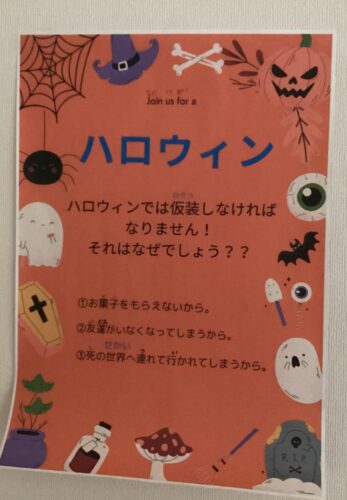 Join us for a
ハロウィン
ハロウィンでは仮装しなければ
なりません！
それはなぜでしょう？？
①お菓子をもらえないから。
②友達がいなくなってしまうから。
③死の世界へ連れて行かれてしまうから。
R.I.P.